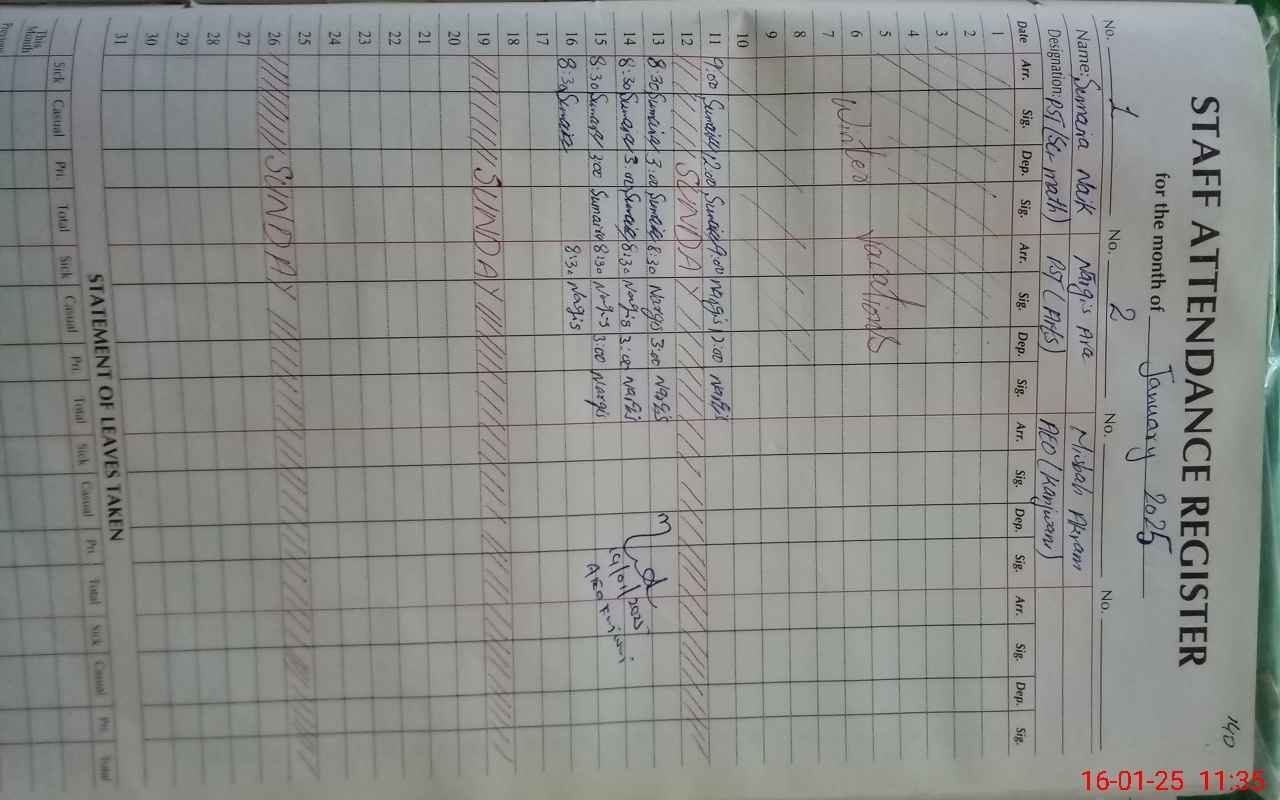 140
STAFF ATTENDANCE REGISTER
for the month of January 2025
No. 1 No. 2 No. No.
Name: Sumaira Naik Nargis Ara Misbah Akram
Designation: PST (Sci math) PST (Arts) AEO (Kanjwani)
Date Arr. Sig. Dep. Sig. Arr. Sig. Dep. Sig. Arr. Sig. Dep. Sig. Arr. Sig. Dep. Sig.
1
2
3
4
5
6 Winter Vacations
7
8
9
10
11 9:00 Sumaira 12:00 Sumaira 9:00 Nargis 12:00 Nargis
12 SUNDAY
13 8:30 Sumaira 3:00 Sumaira 8:30 Nargis 3:00 Nargis
14 8:30 Sumaira 3:00 Sumaira 8:30 Nargis 3:00 Nargis
15 8:30 Sumaira 3:00 Sumaira 8:30 Nargis 3:00 Nargis
16 8:30 Sumaira 8:30 Nargis
14/01/2025
AEO
17
18
19 SUNDAY
20
21
22
23
24
25
26 SUNDAY
27
28
29
30
31
STATEMENT OF LEAVES TAKEN
Sick Casual Pri. Total Sick Casual Pri. Total Sick Casual Pri. Total Sick Casual Pri. Total
This Month
16-01-25 11:35